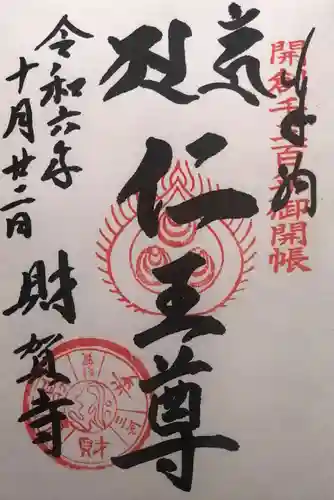 奉拝
開創千三百年御開帳
仁王尊
令和六年
十月廿二日
財賀寺